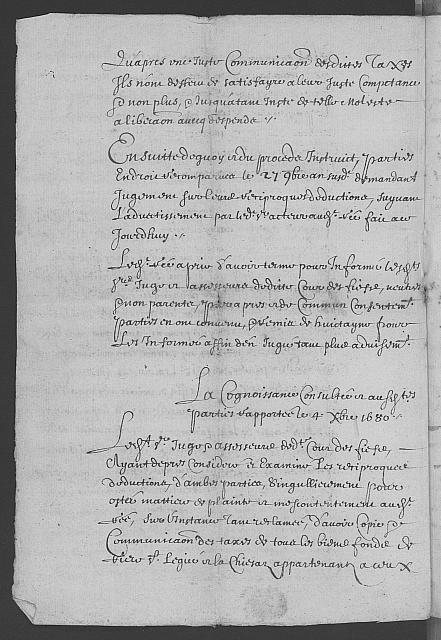 Quapres une Juste Communicaon desdites Taxes
Ils n'ont desseu de satisfayre a leur Juste Competance
& non plus, & Jusqu'a tant Inste de telle moleste
a liberaon avecq despends.
En suitte de quoy et du procedé Instruict, Parties
Endroit recomparues le 27 9bre an susd. demandant
Jugement sur leurs reciproques deductions, suyvant
Ladvertissement par led. Sr acteur aud. Sée fait au
Jourdhuy.
Led. Sée a prié d'avoir terme pour Informer les
Sr Juge et assesseurs de ladite Cour des fiefs, neutres
& non parents, & par apres de Commun Consentemt
Parties en ont convenu, & remis de huictayne pour
Les Informer affin den Juger tant plus advisemt.
La Cognoissance Consultée et ausdites
Parties rapportée le 4 Xbre 1680.
Led. Sr Juge & assesseurs de Cour des fiefs,
Ayant de pres Consideré et Examiné Les reciproques
deductions, d'ambes parties, & singulierement pour
oster mattiere de plainte et mescontentement aud.
Sée, sur l'Instance tant reclamée, d'avoir Copie &
Communicaon des taxes de tous les biens fonds de
riere St Legier et la Chiesaz appartenant a ceux